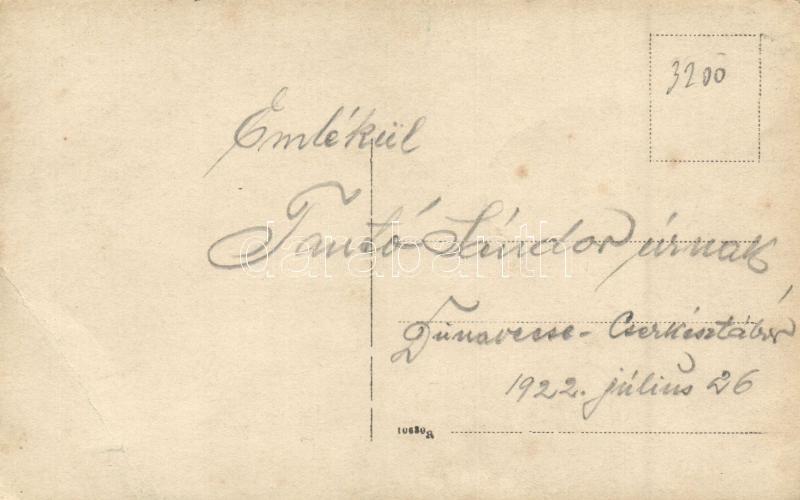 3200
Emlékül
Tantó Sándor úrnak
Dunavecse - Cserkésztábor
1922. július 26
10680a
darabanth